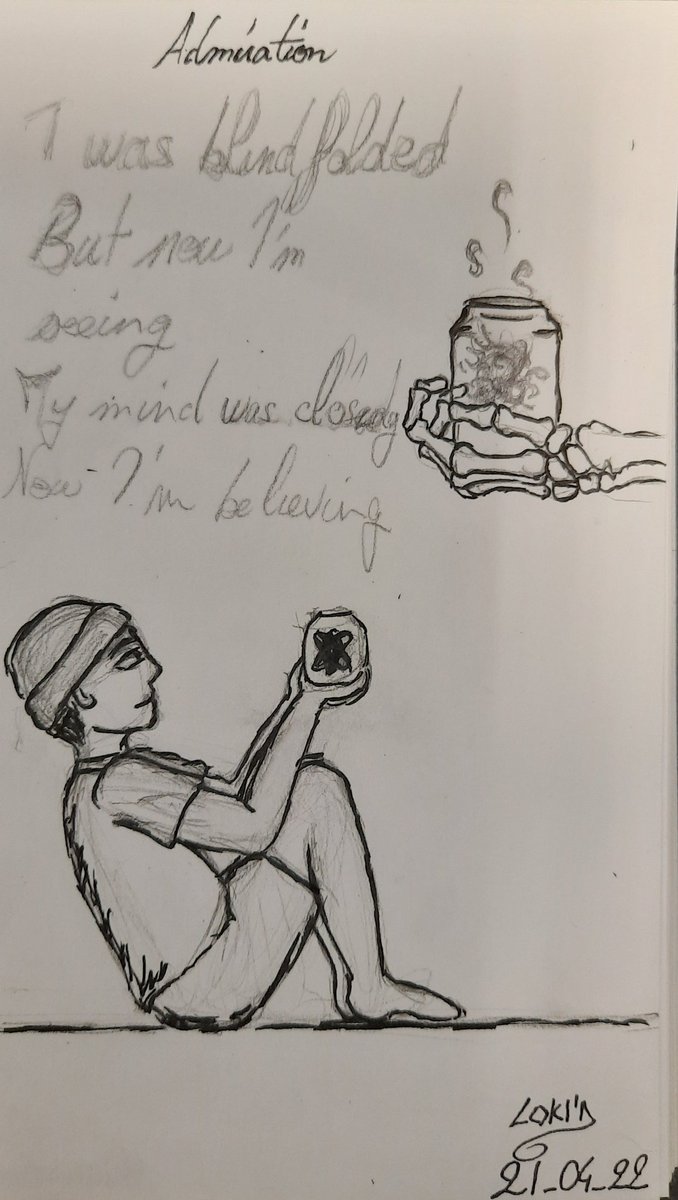 Admiration
I was blindfolded
But now I'm
seeing
My mind was closed
Now I'm believing
LOKI'D
21_04_22